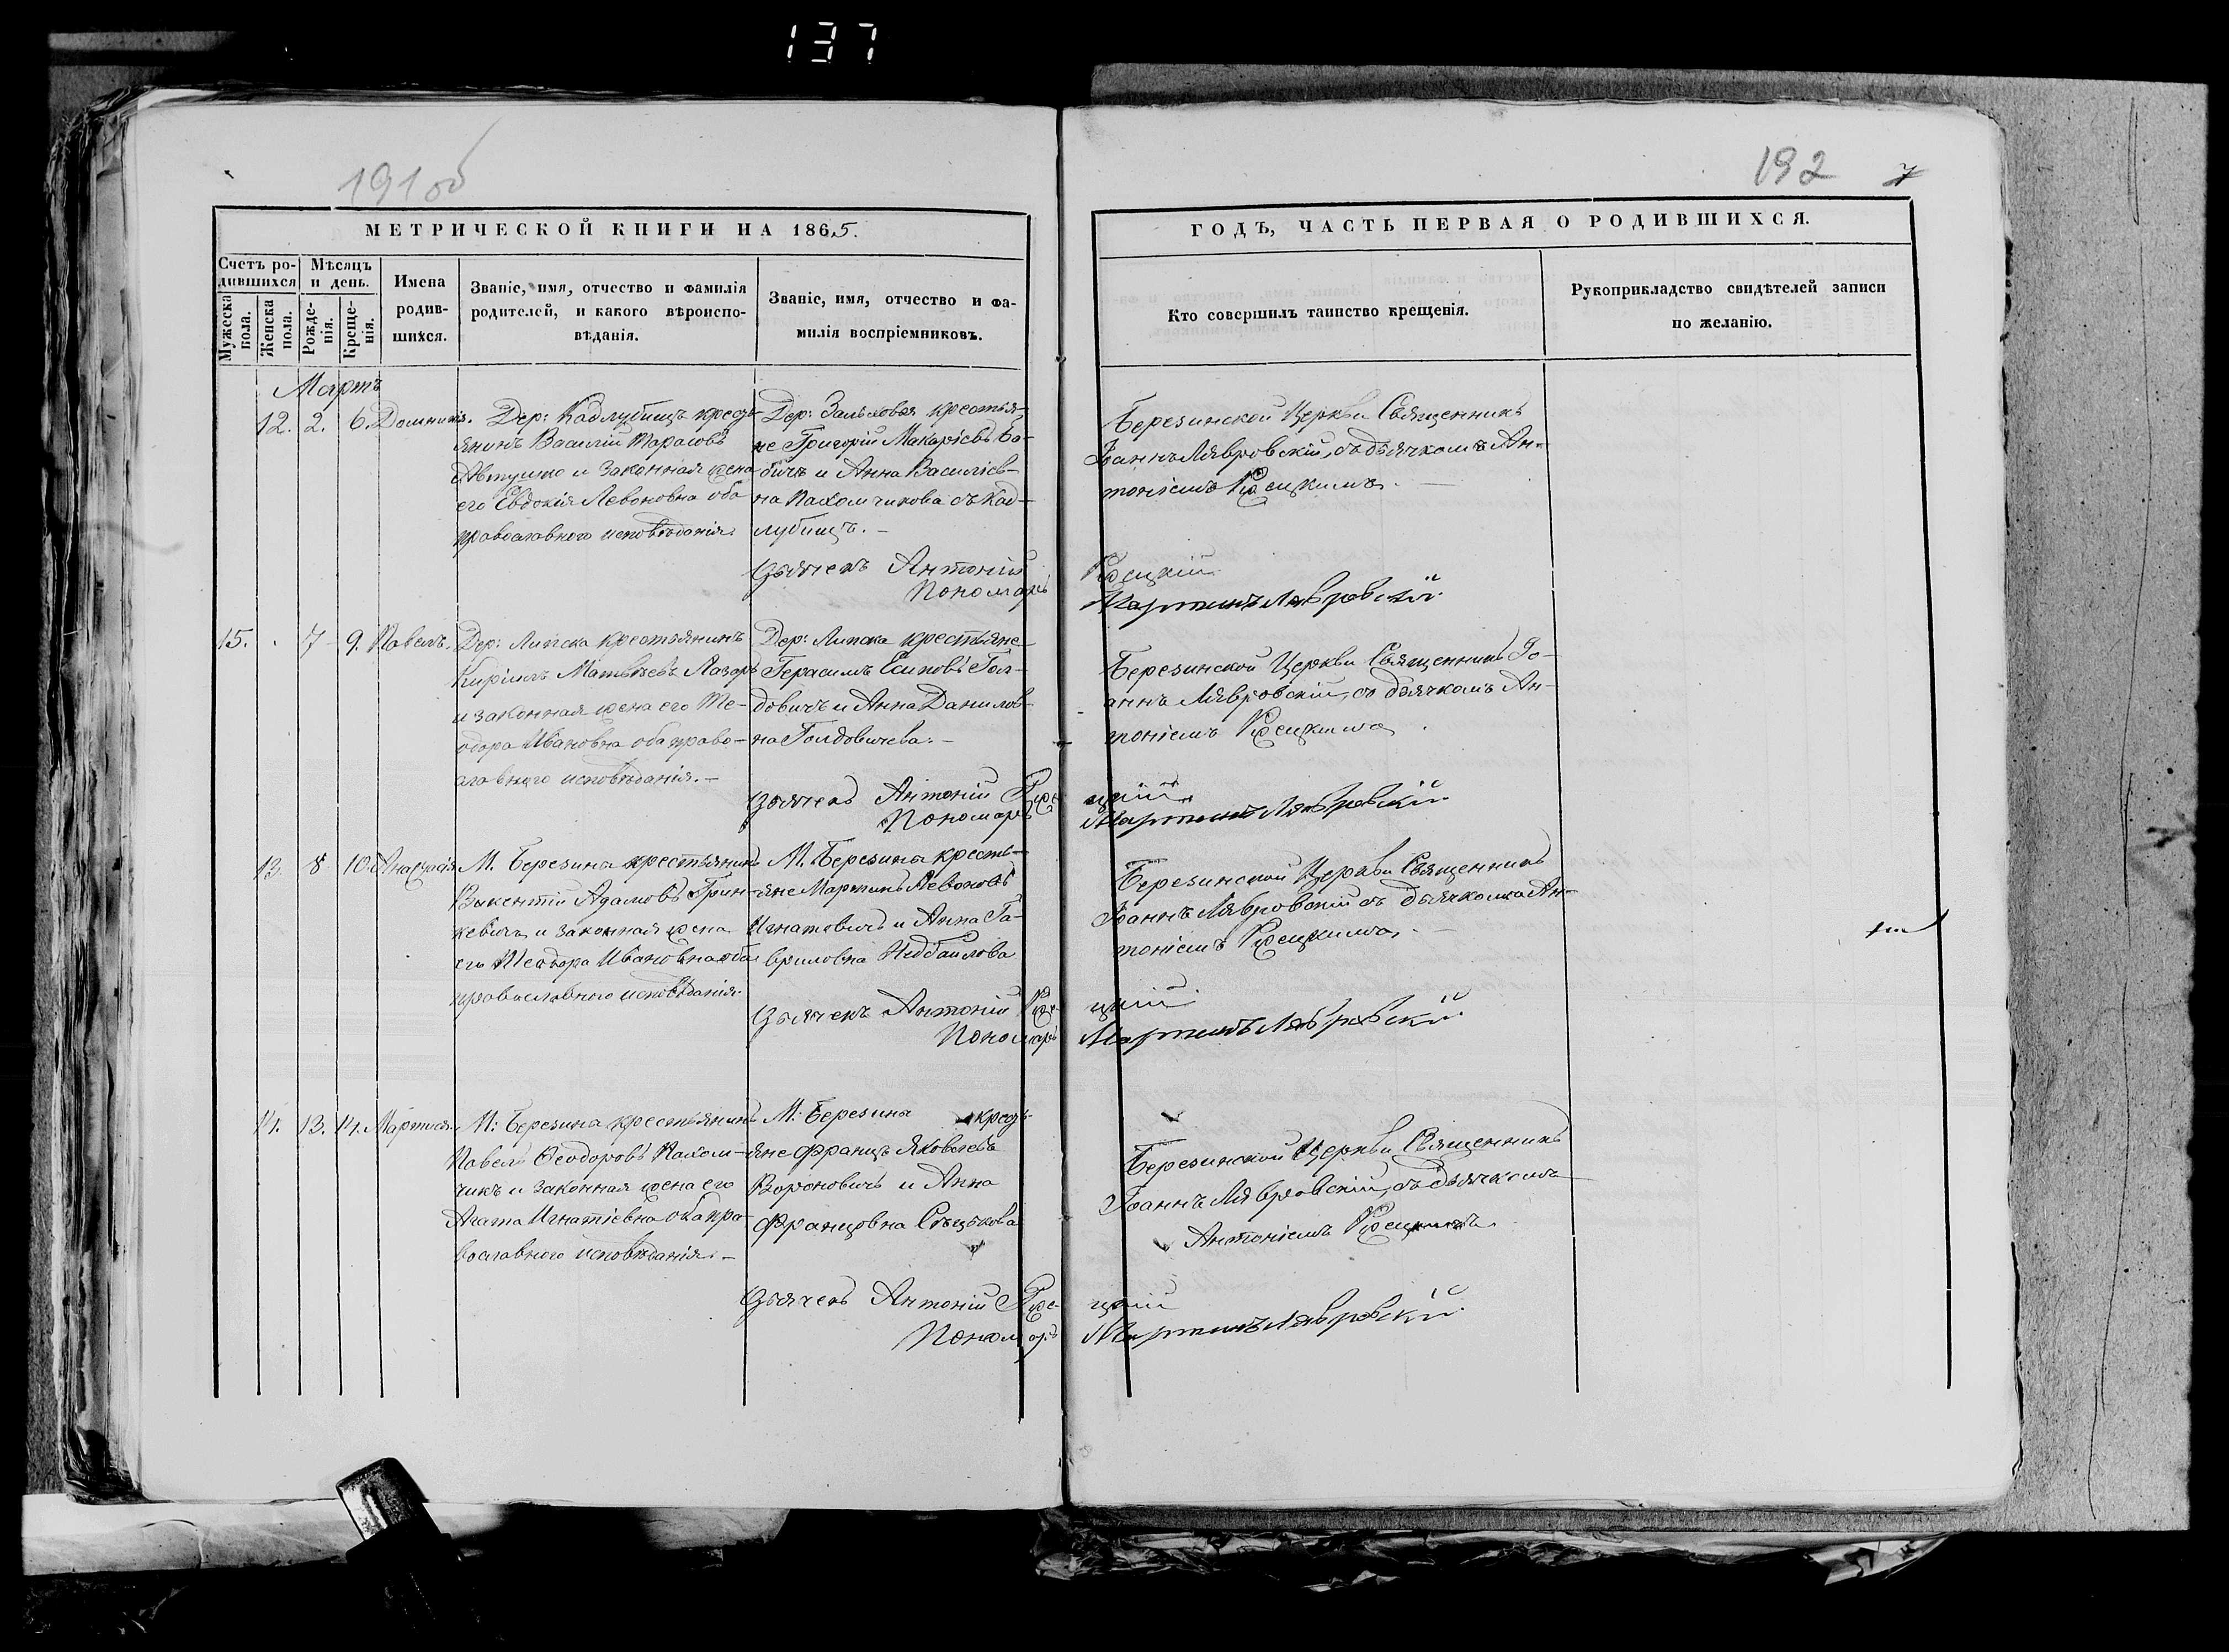 137
191 об
192 7
МЕТРИЧЕСКОЙ КНИГИ НА 1865.
ГОДЪ, ЧАСТЬ ПЕРВАЯ О РОДИВШИХСЯ.
Счетъ ро-
дившихся
Мужеска
пола.
Женска
пола.
Мѣсяцъ
и день.
Рожде-
нія.
Креще-
нія.
Имена
родив-
шихся.
Званіе, имя, отчество и фамилія
родителей, и какого вѣроиспо-
вѣданія.
Званіе, имя, отчество и фа-
милія воспріемниковъ.
Кто совершилъ таинство крещенія.
Рукоприкладство свидѣтелей записи
по желанію.
Мартъ
12. 2. 6. Домникія.
Дер: Кадлубищъ кресть-
янинъ Василій Тарасовъ
и законная жена
его Евдокія Левоновна оба
православного исповѣданія.
Дер: крестья-
не Григорій Макаріевъ Ба-
бичъ и Анна Василіев-
на Пахомчикова съ Кад-
лубищъ. -
Березинской Церкви Священникъ
Іоаннъ Лавровскій, съ дьячкомъ Ан-
тоніемъ
Дьячекъ Антоній
Пономарь Мартинъ Лавровскій.
15. . 7 9. Павелъ.
Дер: Липска крестьянинъ
Кирилъ Матвѣевъ Лазарь
и законная жена его Те-
одора Ивановна оба право-
славного исповѣданія. -
Дер: Липска крестьяне
Герасимъ Есиповъ Гол-
довичъ и Анна Данилов-
на Голдовичева. -
Березинской Церкви Священникъ Іо-
аннъ Лавровскій, съ дьячкомъ Ан-
тоніемъ
Дьячекъ Антоній
Пономарь Мартинъ Лавровскій.
13. 8 10. Анастасія
М. Березина крестьянинъ
Викентій Адамовъ Грин-
кевичъ и законная жена
его Теодора Ивановна оба
православного исповѣданія.
М. Березина кресть-
яне Мартинъ Левоновъ
Игнатовичъ и Анна Га-
вриловна
Березинской Церкви Священникъ
Іоаннъ Лавровскій съ дьячкомъ Ан-
тоніемъ
Дьячекъ Антоній
Пономарь Мартинъ Лавровскій.
14. 13. 14.
М: Березина крестьянинъ
Павелъ Ѳеодоровъ Пахом-
чикъ и законная жена его
Агата Игнатіевна оба пра-
вославного исповѣданія. -
М: Березина кресть-
яне Францъ Яковлевъ
Вороновичъ и Анна
Францовна
Березинской Церкви Священникъ
Іоаннъ Лавровскій, съ дьячкомъ
Антоніемъ
Дьячекъ Антоній
Пономарь Мартинъ Лавровскій.